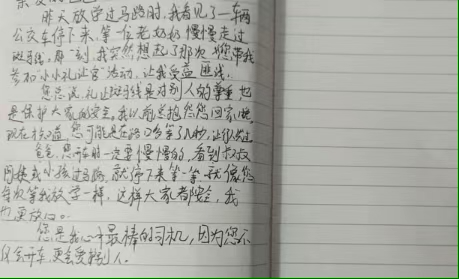 亲爱的爸爸
昨天放学过马路时，我看见了一辆
公交车停下来，等一位老奶奶慢慢走过
斑马线。那一刻，我突然想起了那次您带我
参加小小礼让官活动，让我受益匪浅。
您总说，礼让斑马线是对别人的尊重，也
是保护大家的安全。我以前总抱怨您回家晚，
现在才知道，您可能是在路口多等了几秒，让行人先过
爸爸，您开车时一定要慢慢的，看到叔叔
阿姨或小孩过马路，就停下来等一等，就像您
每次等我放学一样，这样大家都安全，我
也更放心。
您是我心中最棒的司机，因为您不
仅会开车，更会爱护别人。